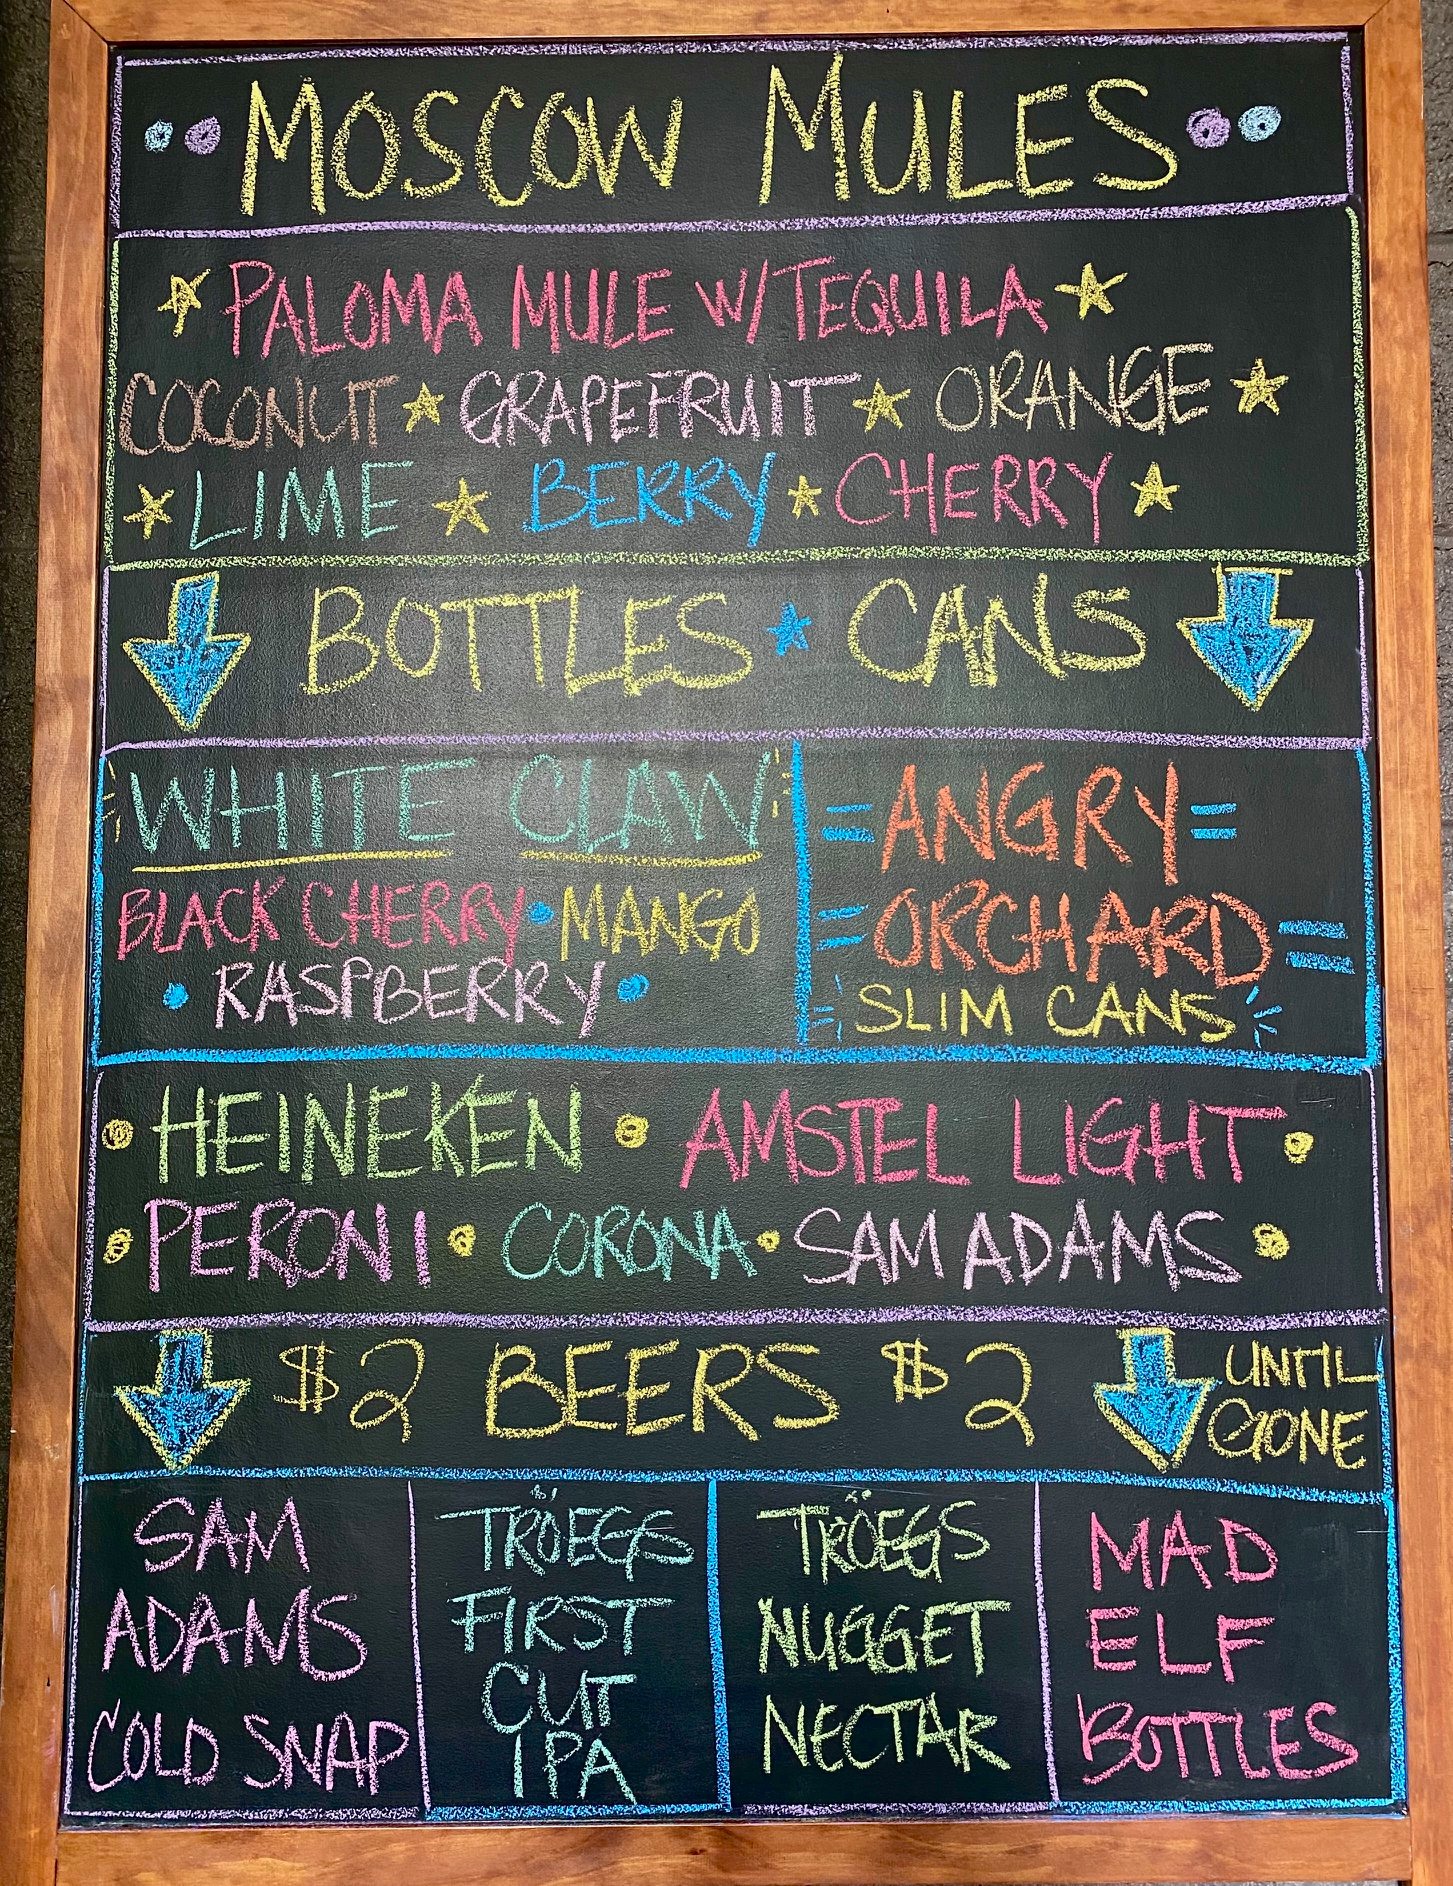 MOSCOW MULES
PALOMA MULE W/TEQUILA
COCONUT GRAPEFRUIT ORANGE
LIME BERRY CHERRY
BOTTLES CANS
WHITE CLAW
BLACK CHERRY • MANGO
• RASPBERRY •
=ANGRY=
=ORCHARD=
SLIM CANS
• HEINEKEN • AMSTEL LIGHT •
• PERONI • CORONA • SAM ADAMS •
$2 BEERS $2
UNTIL
GONE
SAM
ADAMS
COLD SNAP
TRÖEGS
FIRST
CUT
IPA
TRÖEGS
NUGGET
NECTAR
MAD
ELF
BOTTLES